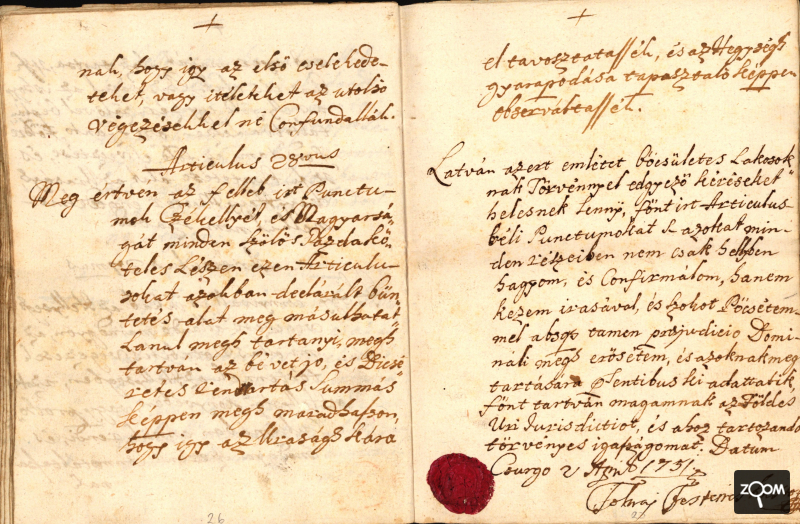 nak, hogy igy az első cselekede-
tekel, vagy itéletekel az utolso
végezésekkel ne Confundallják.
Articulus 28vus
Meg értvén az felleb irt Punctu-
mok és Magyarsá-
gát minden Szőlős Gazda kö-
teles lészen ezen Articulu-
sokat azokban declarált bün
tetés alat meg másulhatat
lanul megh tartanyi, megh
tartván az bé vet jo, és Dicsé
retes rendtartás Summás
képpen megh maradhasson,
hogy igy az Uraságh kára
el tavosztatassék, és az Hegységh
gyarapodása tapasztaló képpen
observáltassék.
Latván azert emlétet böcsületes Lakosok
nak Törvénnyel edgyező kéréseket
helesnek lenny, fönt irt Articulus
béli Punctumokat azokat min-
den részeiben nem csak helyben
hagyom, és Confirmálom, hanem
kezem irasával, és szokot Pöcsétem-
mel absq tamen præjudicio Domi-
náli megh erősétem, és azoknak meg
tartására ki adattatik,
fönt tartván magamnak az Földes
Uri Jurisdictiot, és ahoz tartozando
törvényes igasságomat. Datum
Csurgo 2 April 1751.
Tolnaj Festetics
26
27
ZOOM